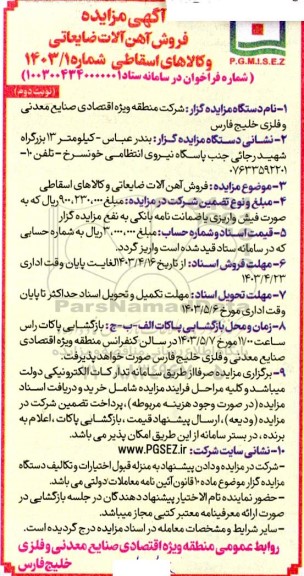 آگهی مزایده
فروش آهن آلات ضایعاتی
و کالاهای اسقاطی شماره ۱۴۰۳/۱
P.G.M.I.S.E.Z
(شماره فراخوان در سامانه ستاد ۱۰۰۳۰۰۴۳۴۰۰۰۰۰۰۱)
(نوبت دوم)
۱-نام دستگاه مزایده گزار: شرکت منطقه ویژه اقتصادی صنایع معدنی
و فلزی خلیج فارس
۲-نشانی دستگاه مزایده گزار: بندر عباس - کیلومتر ۱۳ بزرگراه
شهید رجائی جنب پاسگاه نیروی انتظامی خونسرخ - تلفن ۱۰-
۰۷۶۳۳۵۹۲۲۰۱
۳-موضوع مزایده: فروش آهن آلات ضایعاتی و کالاهای اسقاطی
۴-مبلغ و نوع تضمین شرکت در مزایده: مبلغ ۹۰۰,۲۳۰,۰۰۰ ریال که به
صورت فیش واریزی یا ضمانت نامه بانکی به نفع مزایده گزار
۵-قیمت اسناد و شماره حساب: مبلغ ۳,۰۰۰,۰۰۰ ریال به شماره حسابی
که در سامانه ستاد قید شده است واریز گردد.
۶-مهلت فروش اسناد: از تاریخ ۱۴۰۳/۴/۱۶ لغایت پایان وقت اداری
۱۴۰۳/۴/۲۳
۷-مهلت تحویل اسناد: مهلت تکمیل و تحویل اسناد حداکثر تا پایان
وقت اداری مورخ ۱۴۰۳/۵/۶
۸-زمان و محل بازگشایی پاکات الف-ب-ج: بازگشایی پاکات راس
ساعت ۱۷:۰۰ مورخ ۱۴۰۳/۵/۷ در سالن کنفرانس منطقه ویژه اقتصادی
صنایع معدنی و فلزی خلیج فارس صورت خواهد پذیرفت.
۹-برگزاری مزایده صرفا از طریق سامانه تدارکات الکترونیکی دولت
میباشد و کلیه مراحل فرایند مزایده شامل خرید و دریافت اسناد
مزایده (در صورت وجود هزینه مربوطه)، پرداخت تضمین شرکت در
مزایده (ودیعه)، ارسال پیشنهاد قیمت، بازگشایی پاکات، اعلام به
برنده، در بستر سامانه از این طریق امکان پذیر می باشد.
۱۰-نشانی سایت شرکت: www.PGSEZ.ir
-شرکت در مزایده و دادن پیشنهاد به منزله قبول اختیارات و تکالیف دستگاه
مزایده گزار موضوع ماده ۱۰ قانون آئین نامه معاملات دولتی می باشد.
-حضور نماینده تام الاختیار پیشنهاد دهندگان در جلسه بازگشایی در
صورت ارائه معرفینامه معتبر کتبی مجاز میباشد.
-سایر شرایط و مشخصات معامله در اسناد مزایده درج گردیده است.
روابط عمومی منطقه ویژه اقتصادی صنایع معدنی و فلزی
خلیج فارس